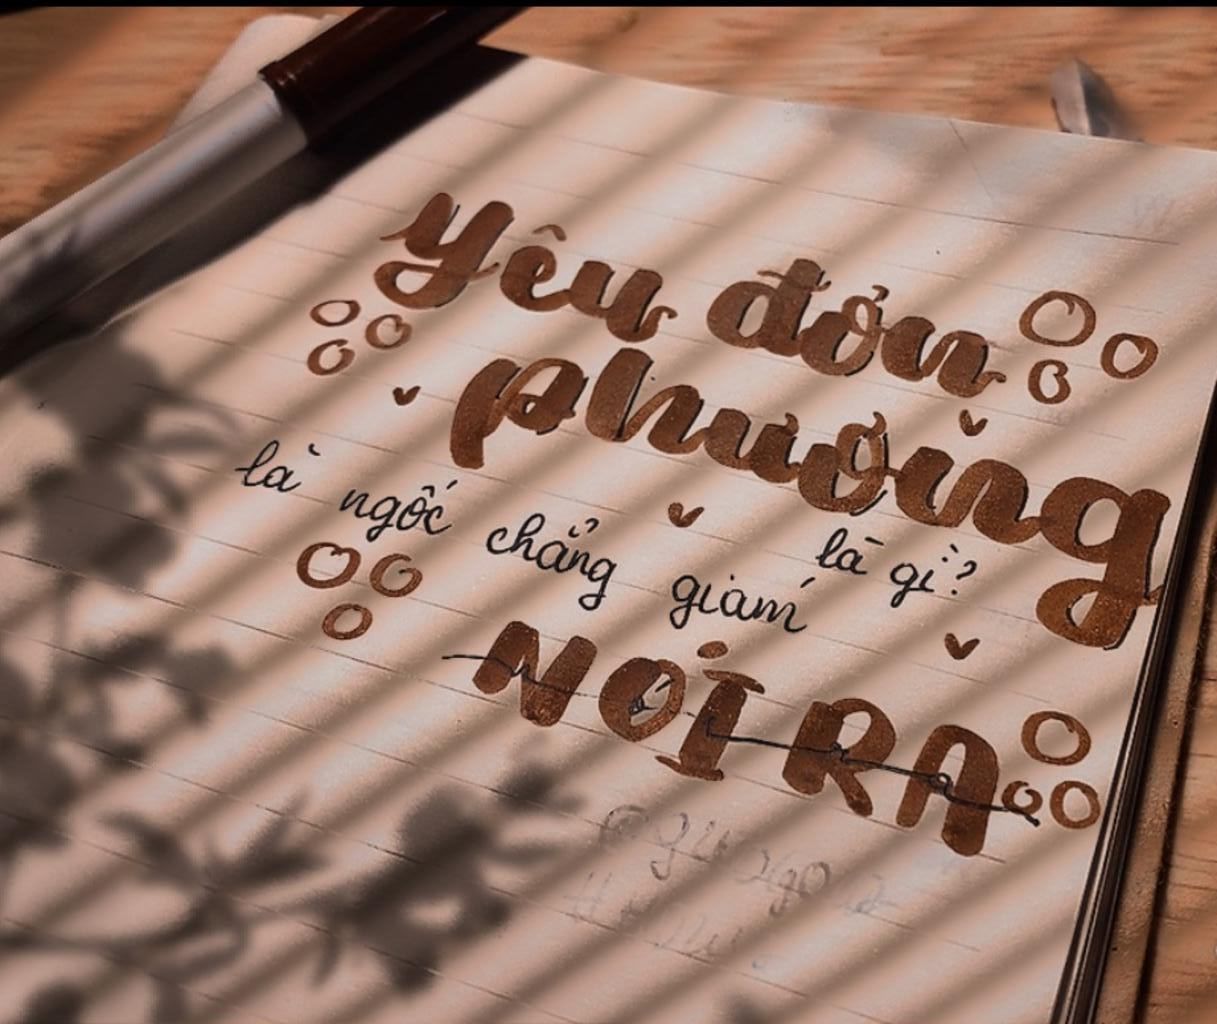 Yêu đơn
phương
là gì?
là ngốc chẳng giám
NÓI RA